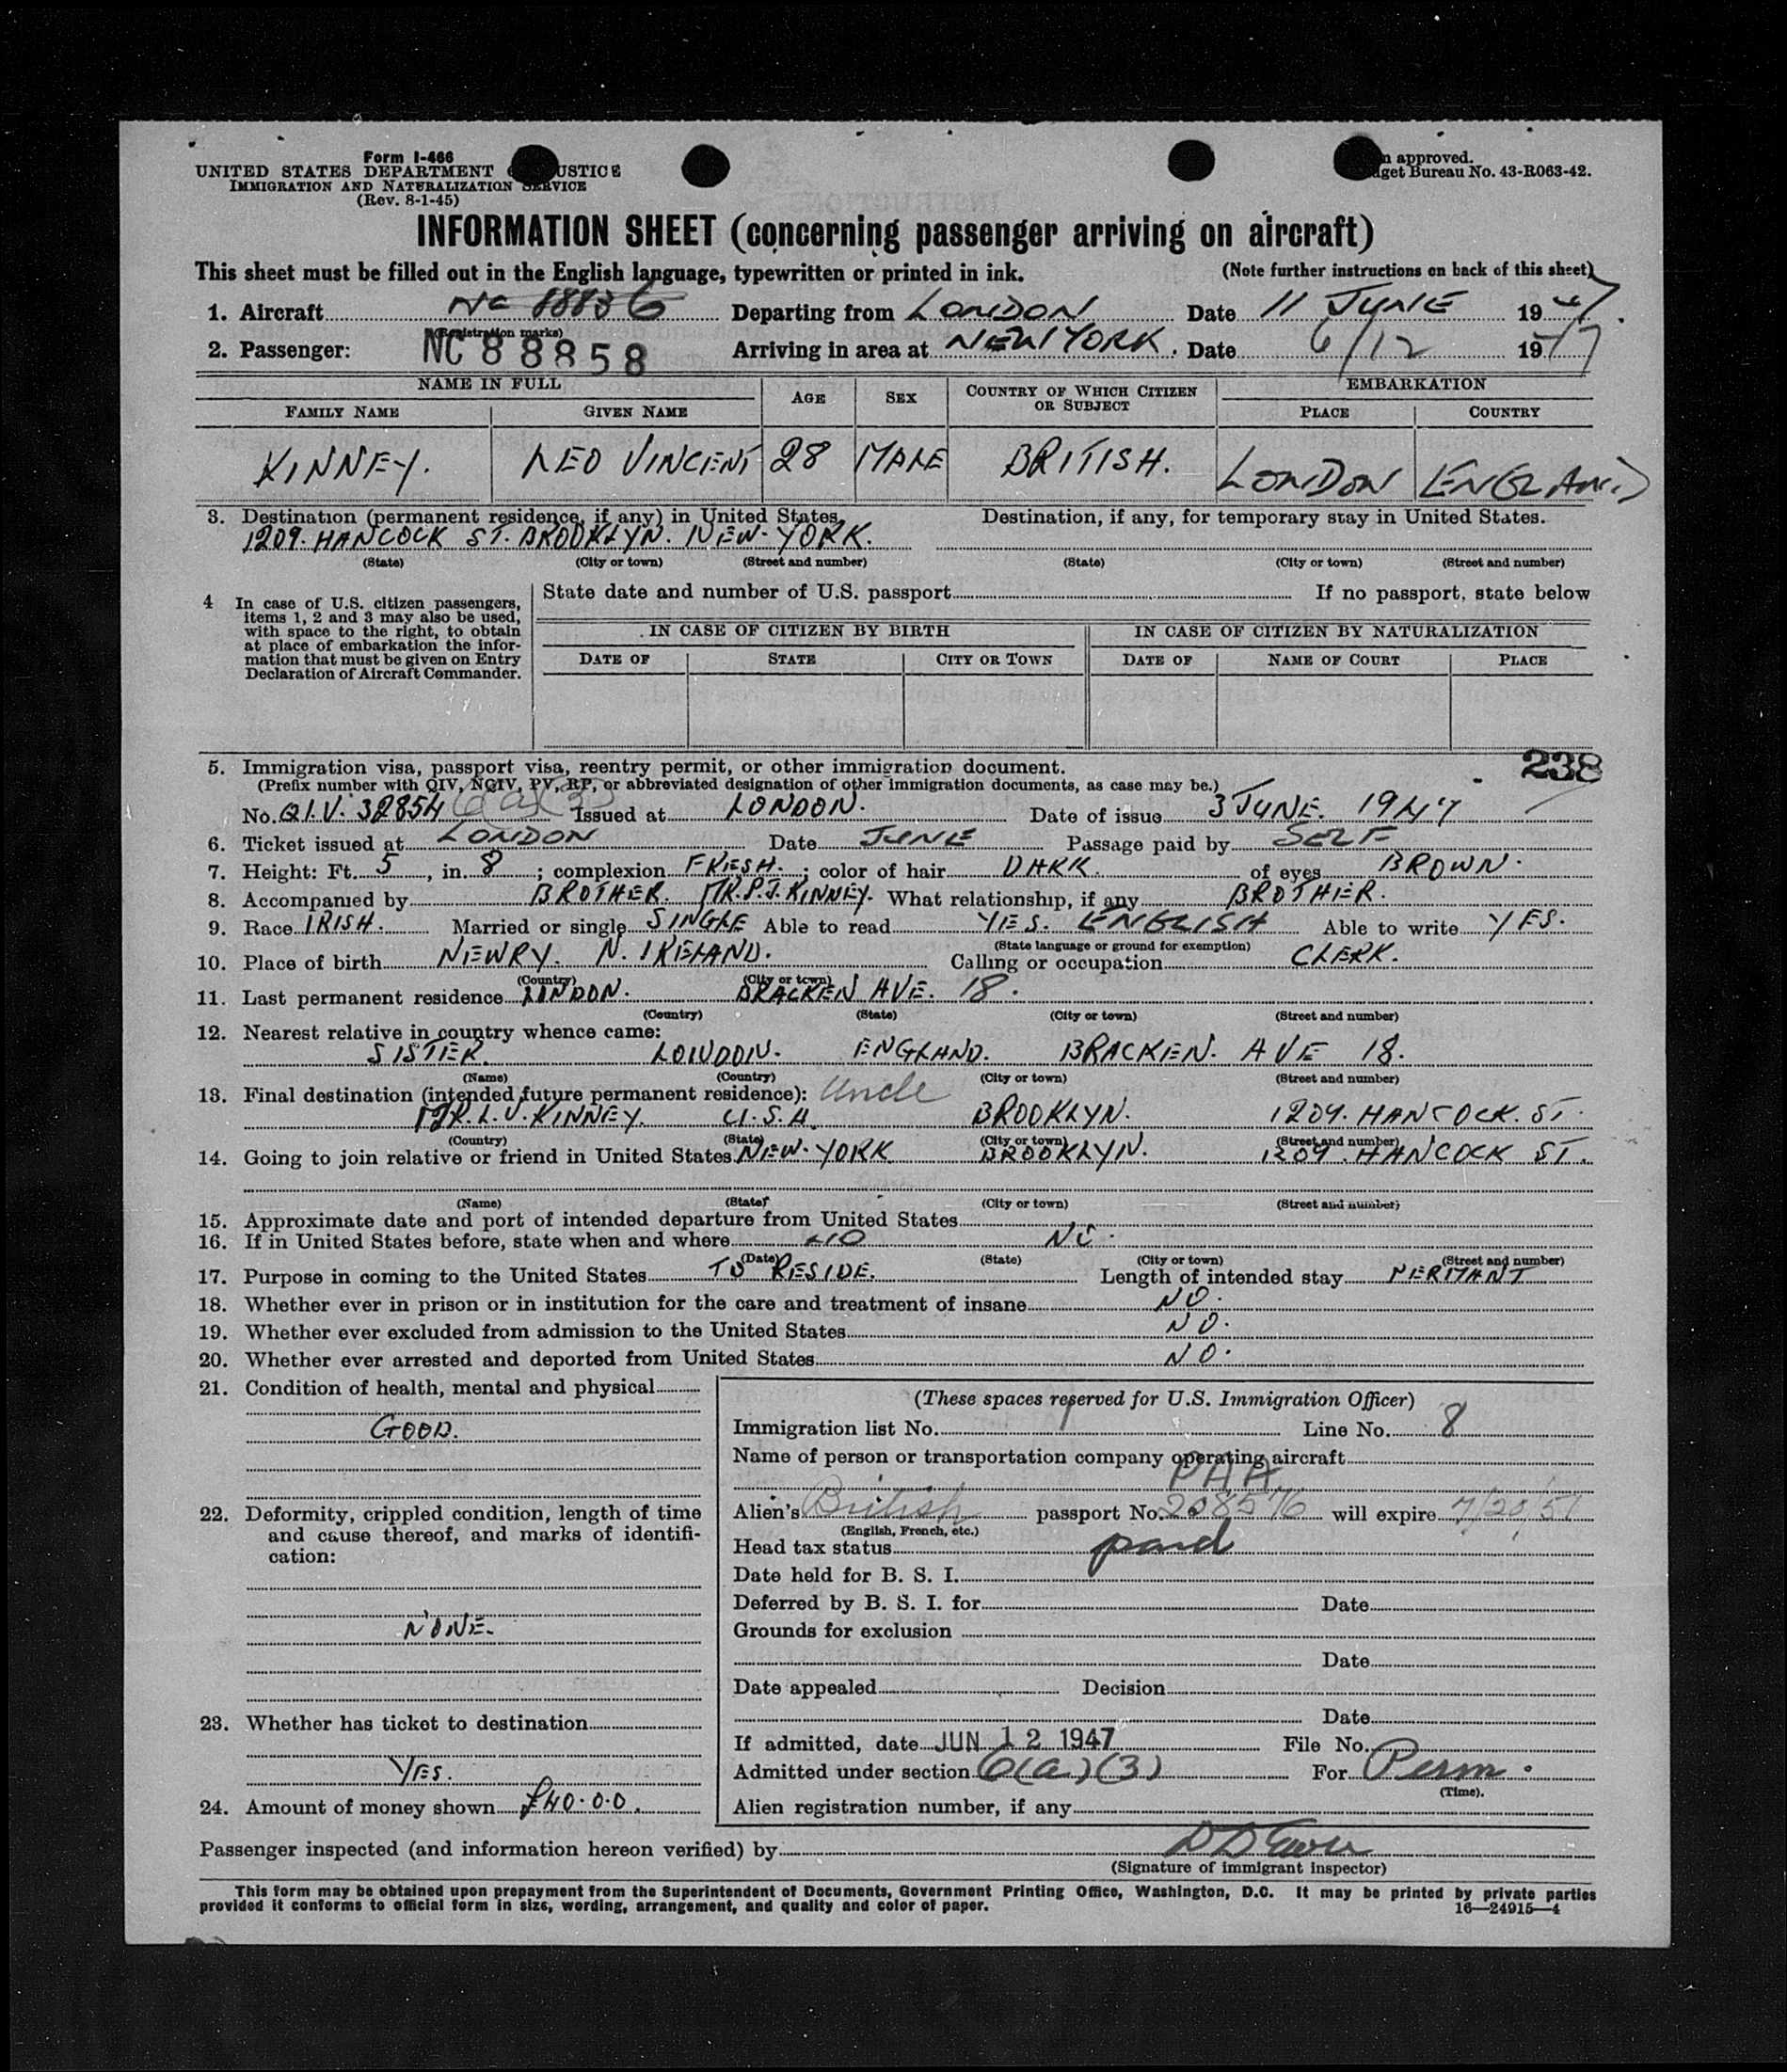 Form I-466
UNITED STATES DEPARTMENT USTICE
IMMIGRATION AND NATURALIZATION SERVICE
(Rev. 8-1-45)
approved.
get Bureau No. 43-R063-42.
INFORMATION SHEET (concerning passenger arriving on aircraft)
This sheet must be filled out in the English language, typewritten or printed in ink. (Note further instructions on back of this sheet)
1. Aircraft NC 88836 Departing from LONDON Date 11 JUNE 1947.
(Registration marks)
2. Passenger: NC 88858 Arriving in area at NEW YORK. Date 6/12 1947
NAME IN FULL AGE SEX COUNTRY OF WHICH CITIZEN OR SUBJECT EMBARKATION
FAMILY NAME GIVEN NAME PLACE COUNTRY
KINNEY. LEO VINCENT 28 MALE BRITISH. LONDON ENGLAND
3. Destination (permanent residence, if any) in United States Destination, if any, for temporary stay in United States.
1209. HANCOCK ST. BROOKLYN. NEW-YORK.
(State) (City or town) (Street and number) (State) (City or town) (Street and number)
4 In case of U.S. citizen passengers, items 1, 2 and 3 may also be used, with space to the right, to obtain at place of embarkation the information that must be given on Entry Declaration of Aircraft Commander.
State date and number of U.S. passport If no passport, state below
IN CASE OF CITIZEN BY BIRTH IN CASE OF CITIZEN BY NATURALIZATION
DATE OF STATE CITY OR TOWN DATE OF NAME OF COURT PLACE
238
5. Immigration visa, passport visa, reentry permit, or other immigration document.
(Prefix number with QIV, NQIV, PV, RP, or abbreviated designation of other immigration documents, as case may be.)
No. Q.I.V. 32854 6(a)(3) Issued at LONDON. Date of issue 3 JUNE. 1947
6. Ticket issued at LONDON Date JUNE Passage paid by SELF
7. Height: Ft. 5, in. 8; complexion FRESH.; color of hair DARK. of eyes BROWN.
8. Accompanied by BROTHER. MR. P.J. KINNEY. What relationship, if any BROTHER.
9. Race IRISH. Married or single SINGLE Able to read YES. ENGLISH Able to write YES.
(State language or ground for exemption)
10. Place of birth NEWRY. N. IRELAND. Calling or occupation CLERK.
(Country) (City or town)
11. Last permanent residence LONDON. BRACKEN AVE. 18.
(Country) (State) (City or town) (Street and number)
12. Nearest relative in country whence came:
SISTER. LONDON. ENGLAND. BRACKEN. AVE 18.
(Name) (Country) (City or town) (Street and number)
13. Final destination (intended future permanent residence): Uncle
MR. L. V. KINNEY. U.S.A. BROOKLYN. 1209. HANCOCK. ST.
(Country) (State) (City or town) (Street and number)
14. Going to join relative or friend in United States NEW-YORK BROOKLYN. 1209. HANCOCK ST.
(Name) (State) (City or town) (Street and number)
15. Approximate date and port of intended departure from United States
16. If in United States before, state when and where NO NO.
(Date) (State) (City or town) (Street and number)
17. Purpose in coming to the United States TO RESIDE. Length of intended stay PERMANT
18. Whether ever in prison or in institution for the care and treatment of insane NO.
19. Whether ever excluded from admission to the United States NO.
20. Whether ever arrested and deported from United States NO.
21. Condition of health, mental and physical
GOOD.
22. Deformity, crippled condition, length of time
and cause thereof, and marks of identifi-
cation:
NONE.
23. Whether has ticket to destination
YES.
24. Amount of money shown £40.0.0.
(These spaces reserved for U.S. Immigration Officer)
Immigration list No. 1 Line No. 8
Name of person or transportation company operating aircraft
PAA
Alien's British passport No. 208576 will expire 7/20/51
(English, French, etc.)
Head tax status paid
Date held for B. S. I.
Deferred by B. S. I. for Date
Grounds for exclusion
Date
Date appealed Decision
Date
If admitted, date JUN 12 1947 File No.
Admitted under section 6(a)(3) For Perm.
(Time).
Alien registration number, if any
Passenger inspected (and information hereon verified) by
(Signature of immigrant inspector)
This form may be obtained upon prepayment from the Superintendent of Documents, Government Printing Office, Washington, D.C. It may be printed by private parties
provided it conforms to official form in size, wording, arrangement, and quality and color of paper. 16—24915—4